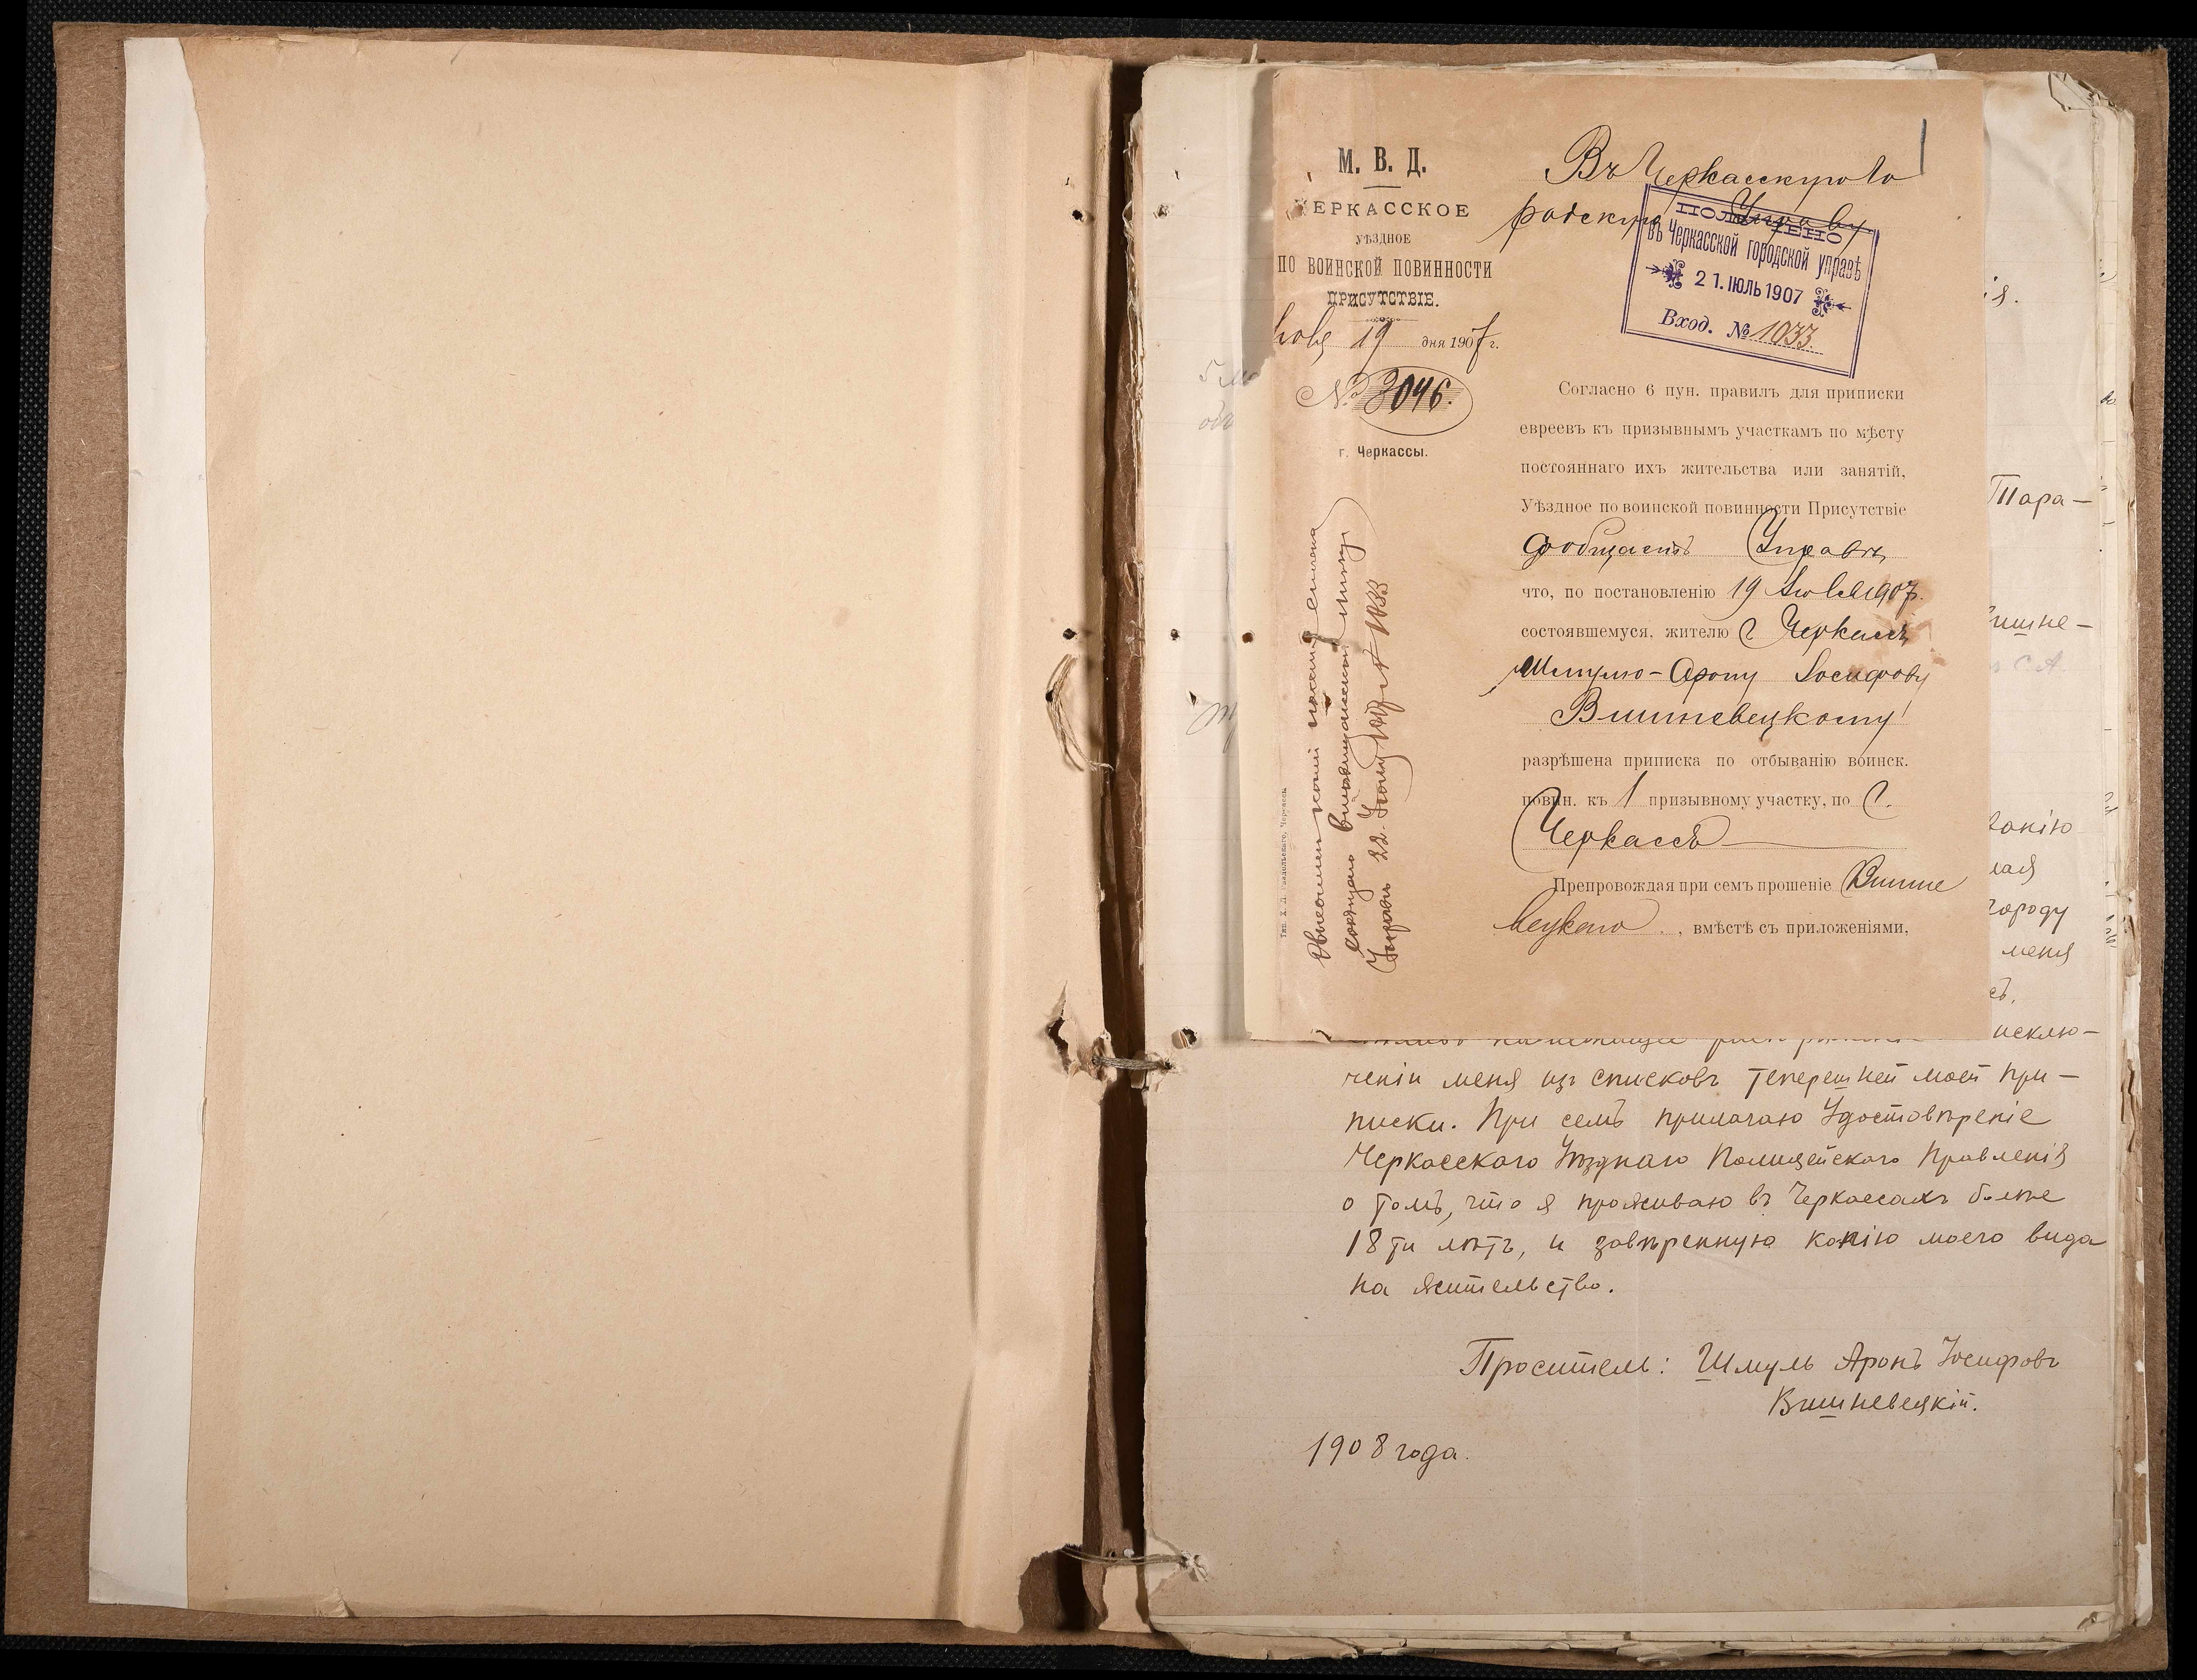 М. В. Д.
ЧЕРКАССКОЕ
УѢЗДНОЕ
ПО ВОИНСКОЙ ПОВИННОСТИ
ПРИСУТСТВІЕ.
19 дня 1907 г.
№ 3046.
г. Черкассы.
Въ Черкасскую Го
родскую Управу
ПОЛУЧЕНО
въ Черкасской городской управѣ
21. ІЮЛЬ 1907
Вход. № 1033.
Согласно 6 пун. правилъ для приписки
евреевъ къ призывнымъ участкамъ по мѣсту
постояннаго ихъ жительства или занятій,
Уѣздное по воинской повинности Присутствіе
сообщаетъ Управѣ,
что, по постановленію 19 Іюля 1907 г.
состоявшемуся, жителю г Черкассъ
Шмулю-Арону Іосифову
Вишневецкому
разрѣшена приписка по отбыванію воинск.
повин. къ 1 призывному участку, по г.
Черкассъ
Препровождая при семъ прошеніе Вишне
вецкаго, вмѣстѣ съ приложеніями,
22 1907 г № 1033
ія.
Тара-
ишне-
городу
меня
исклю-
ченіи меня изъ списковъ теперешней моей при-
писки. При семъ прилагаю Удостовѣреніе
Черкасскаго Уѣзднаго Полицейскаго Правленія
о томъ, что я проживаю въ Черкассахъ болѣе
18 ти лѣтъ, и завѣренную копію моего вида
на жительство.
Проситель: Шмуль Аронъ Іосифовъ
Вишневецкій.
1908 года.